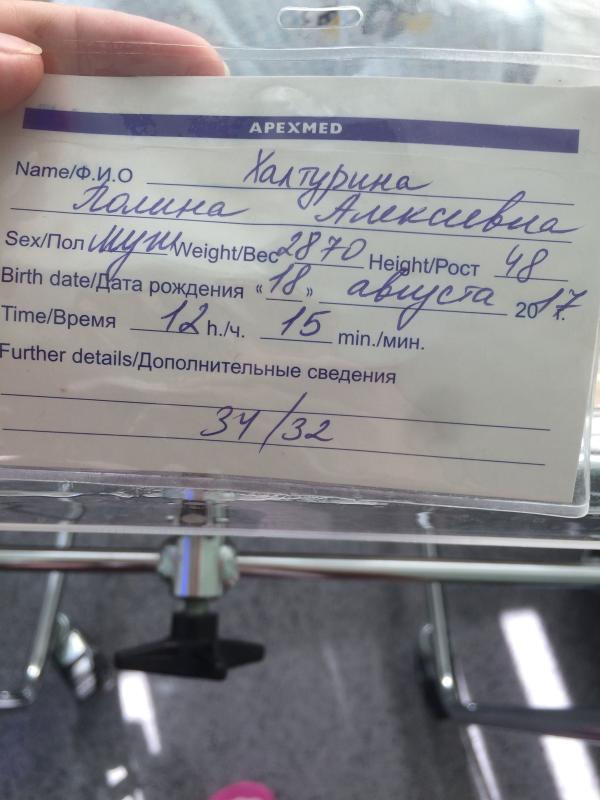 APEXMED
Name/Ф.И.О Халтурина
Полина Алексеевна
Sex/Пол муж Weight/Вес 2870 Height/Рост 48
Birth date/Дата рождения «18» августа 2017 г.
Time/Время 12 h./ч. 15 min./мин.
Further details/Дополнительные сведения
34/32